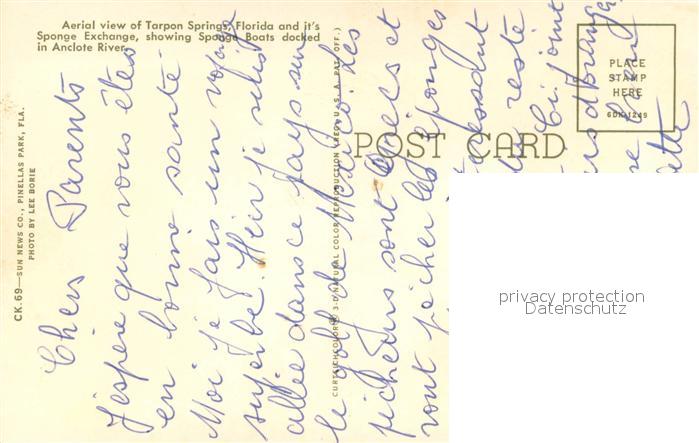 Aerial view of Tarpon Springs, Florida and it's
Sponge Exchange, showing Sponge Boats docked
in Anclote River.
CK.69—SUN NEWS CO., PINELLAS PARK, FLA.
PHOTO BY LEE BORIE
CURTEICHCOLOR® 3-D NATURAL COLOR REPRODUCTION (REG'D U.S.A. PAT. OFF.)
POST CARD
PLACE
STAMP
HERE
6DK-1249
Chers Parents
J'espère que vous êtes
en bonne santé
Moi je fais un voyage
superbe. Hier je suis
allée dans ce pays sur
le golfe de Mexico. les
pêcheurs sont Grecs et
vont pêcher les éponges
reste
Ci joint
privacy protection
Datenschutz